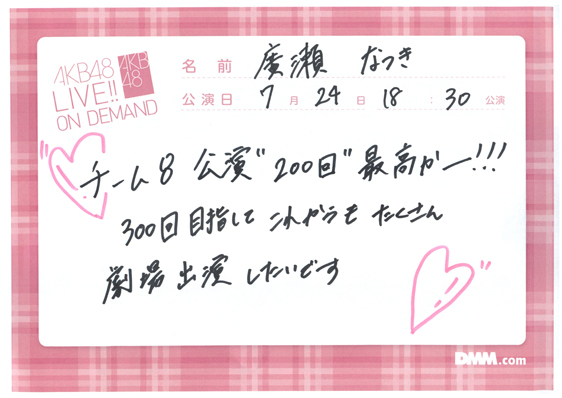 AKB48
LIVE!!
ON DEMAND
AKB
48
名前 廣瀬 なつき
公演日 7月24日18:30公演
チーム8 公演"200回"最高かー!!!
300回目指して これからも たくさん
劇場出演したいです
DMM.com